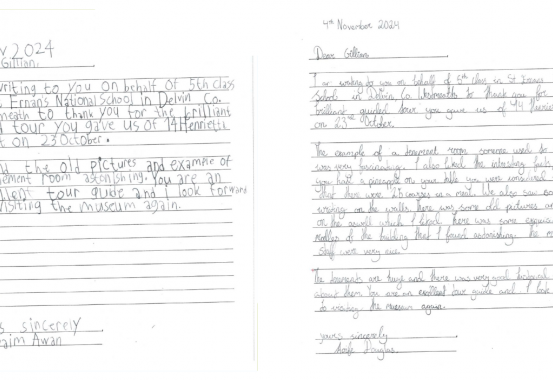 2024
Gillian,
writing to you on behalf of 5th class
Ernan's National School in Delvin Co.
meath to thank you for the brilliant
tour you gave us of 14 Henrietta
on 23 October.
the old pictures and example of
room astonishing. You are an
tour guide and I look forward
visiting the museum again.
sincerely
Awan
4th November 2024
Dear Gillian,
I am writing to you on behalf of 5th class in St Ernans
School in Delvin Co. Westmeath to thank you for
brilliant guided tour you gave us of 14
on 23rd October.
The example of a tenement room someone used to
was very fascinating. I also liked the interesting facts
you had a pineapple on your table you were considered
that there were 25 courses in a meal. We also saw some
writing on the walls. There was some old pictures
on the as well which I liked. There was some
models of the building that I found astonishing. The
staff were very nice.
The tenements are huge and there was very good
about them. You are an excellent tour guide and I look
to visiting the museum again.
yours sincerely
Douglas.